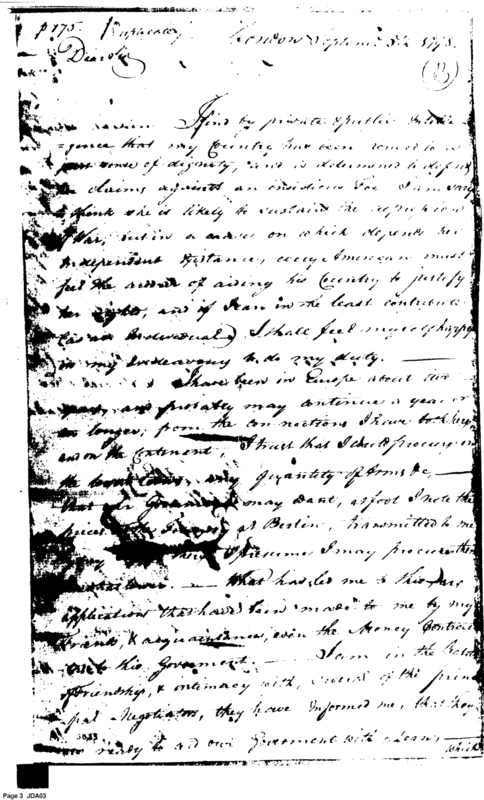 p 175.
London Septem. 5th 1798.
Dear Sir
I find by private & public Intelli
=gence that my Country has been roused to a
just sense of dignity, and is determined to defend
its claims against an insidious Foe. I am sorry
to think she is likely to sustain the
of War, but in a on which depends her
Independent Existance, every American must
feel the of aiding his Country to justify
her rights, and if I can in the least contribute
(as an Individual) I shall feel myself happy
in my Endeavours to do my duty. —
I have been in Europe about two
years, and probably may continue a year or
longer; from the connections I have both here
and on the Continent, I trust that I could procure on
the lowest terms, any Quantity of Arms &c —
that our Government may want, as foot I note the
prices at Berlin, transmitted to me
I presume I may procure them
— What has led me to this are
application that have been made to me by my
Friends, & acquaintance, even the Money Contract
to this Government. — I am in the habits
of Friendship, & intimacy with, several of the princi
pal Negotiators, they have Informed me, that they
are ready to aid our Government with a Loan, —
which
Page 3 JDA03